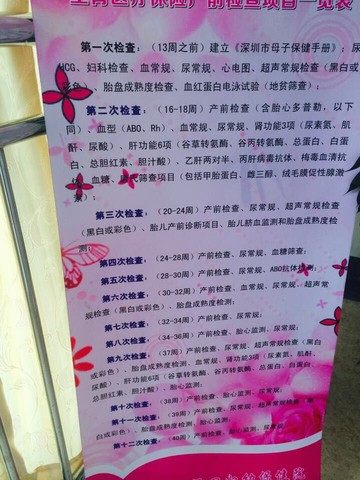 生育医疗保险产前检查项目一览表
第一次检查：（13周之前）建立《深圳市母子保健手册》；尿
HCG、妇科检查、血常规、尿常规、心电图、超声常规检查（黑白或
彩色）、胎盘成熟度检查、血红蛋白电泳试验（地贫筛查）；
第二次检查：（16-18周）产前检查（含胎心多普勒，以下
同）、血型（ABO、Rh）、血常规、尿常规、肾功能3项（尿素氮、肌
酐、尿酸）、肝功能6项（谷草转氨酶、谷丙转氨酶、总蛋白、白蛋
白、总胆红素、胆汁酸）、乙肝两对半、丙肝病毒抗体、梅毒血清抗
体、血糖、唐氏筛查项目（包括甲胎蛋白、雌三醇、绒毛膜促性腺激
素）；
第三次检查：（20-24周）产前检查、尿常规、超声常规检查
（黑白或彩色）、胎儿产前诊断项目、胎儿脐血监测和胎盘成熟度检
测；
第四次检查：（24-28周）产前检查、尿常规、血糖筛查；
第五次检查：（28-30周）产前检查、尿常规、ABO抗体检测；
第六次检查：（30-32周）产前检查、血常规、尿常规、超声常
规检查（黑白或彩色）、胎盘成熟度检测；
第七次检查：（32-34周）产前检查、尿常规；
第八次检查：（34-36周）产前检查、胎心监测、尿常规；
第九次检查：（37周）产前检查、尿常规、超声常规检查（黑白
或彩色）、胎盘成熟度检测、血常规、肾功能3项（尿素氮、肌酐、
尿酸）、肝功能6项（谷草转氨酶、谷丙转氨酶、总蛋白、白蛋白、
总胆红素、胆汁酸）、胎心监测；
第十次检查：（38周）产前检查、胎心监测、尿常规；
第十一次检查：（39周）产前检查、尿常规、超声常规检查（黑
白或彩色）、胎心监测；
第十二次检查：（40周）产前检查、胎心监测、尿常规
妇幼保健院